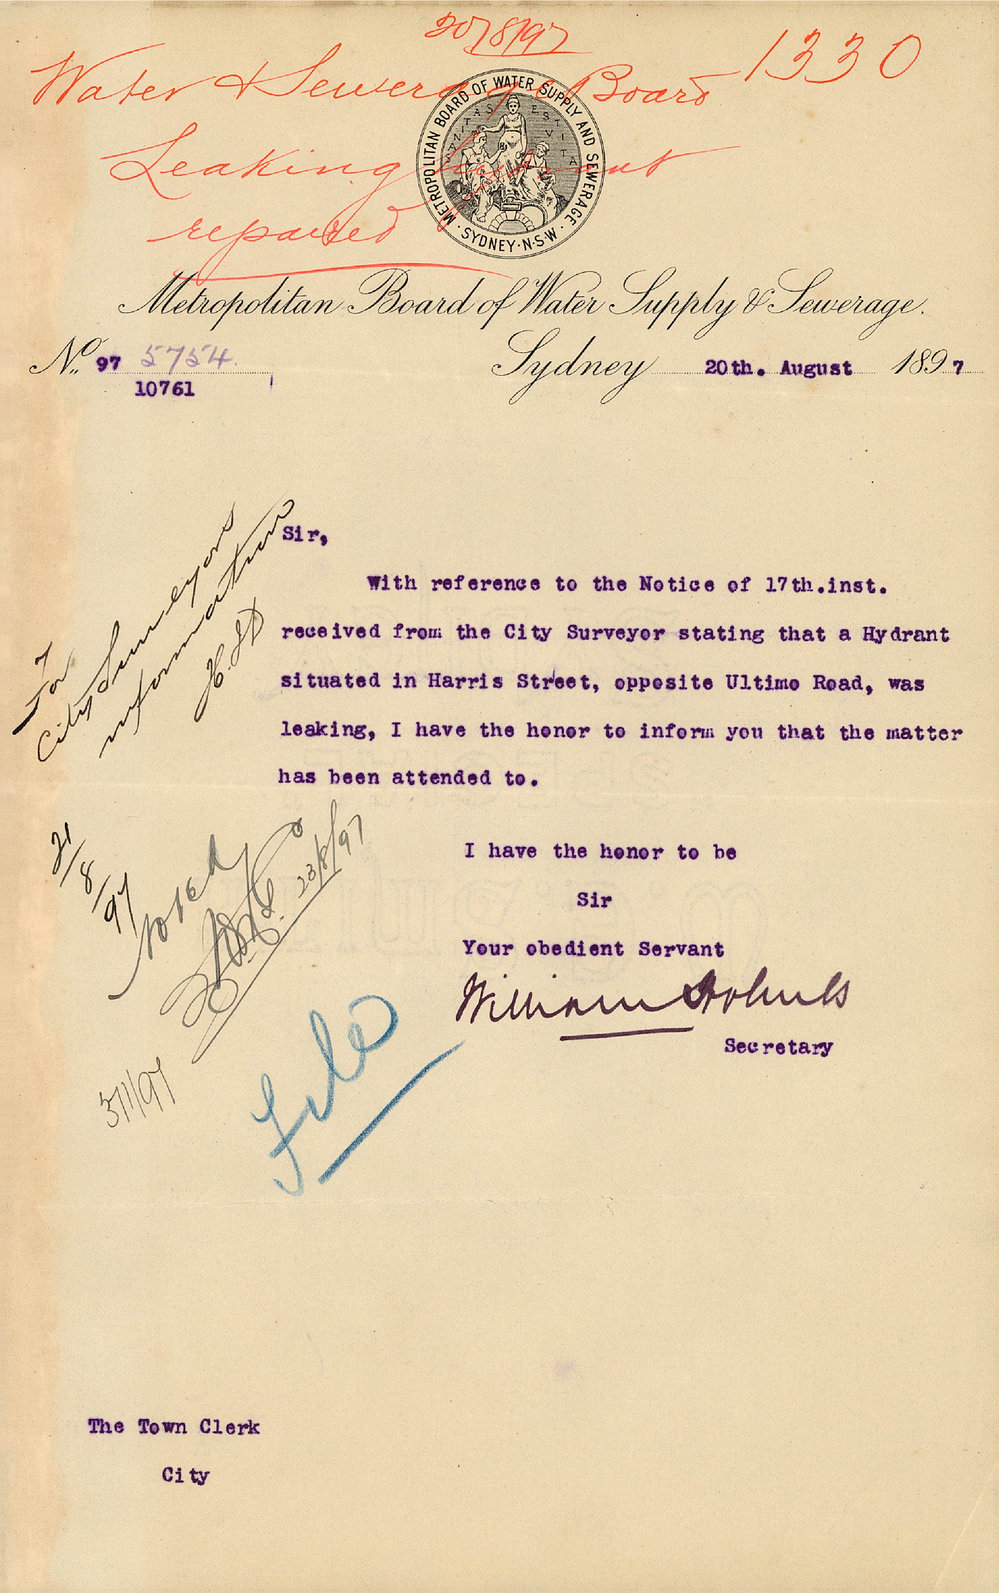 20/8/97
1330
Water & Sewerage Board
Leaking hydrant
repaired
METROPOLITAN BOARD OF WATER SUPPLY AND SEWERAGE.
SANITAS EST VITA
· SYDNEY · N·S·W ·
Metropolitan Board of Water Supply & Sewerage.
No. 97 5754
10761
Sydney 20th. August 1897
For
City Surveyors
information
21/8/97
Sir,
With reference to the Notice of 17th.inst.
received from the City Surveyor stating that a Hydrant
situated in Harris Street, opposite Ultimo Road, was
leaking, I have the honor to inform you that the matter
has been attended to.
Noted
23/8/97
I have the honor to be
Sir
Your obedient Servant
William Holmes
Secretary
File
The Town Clerk
City